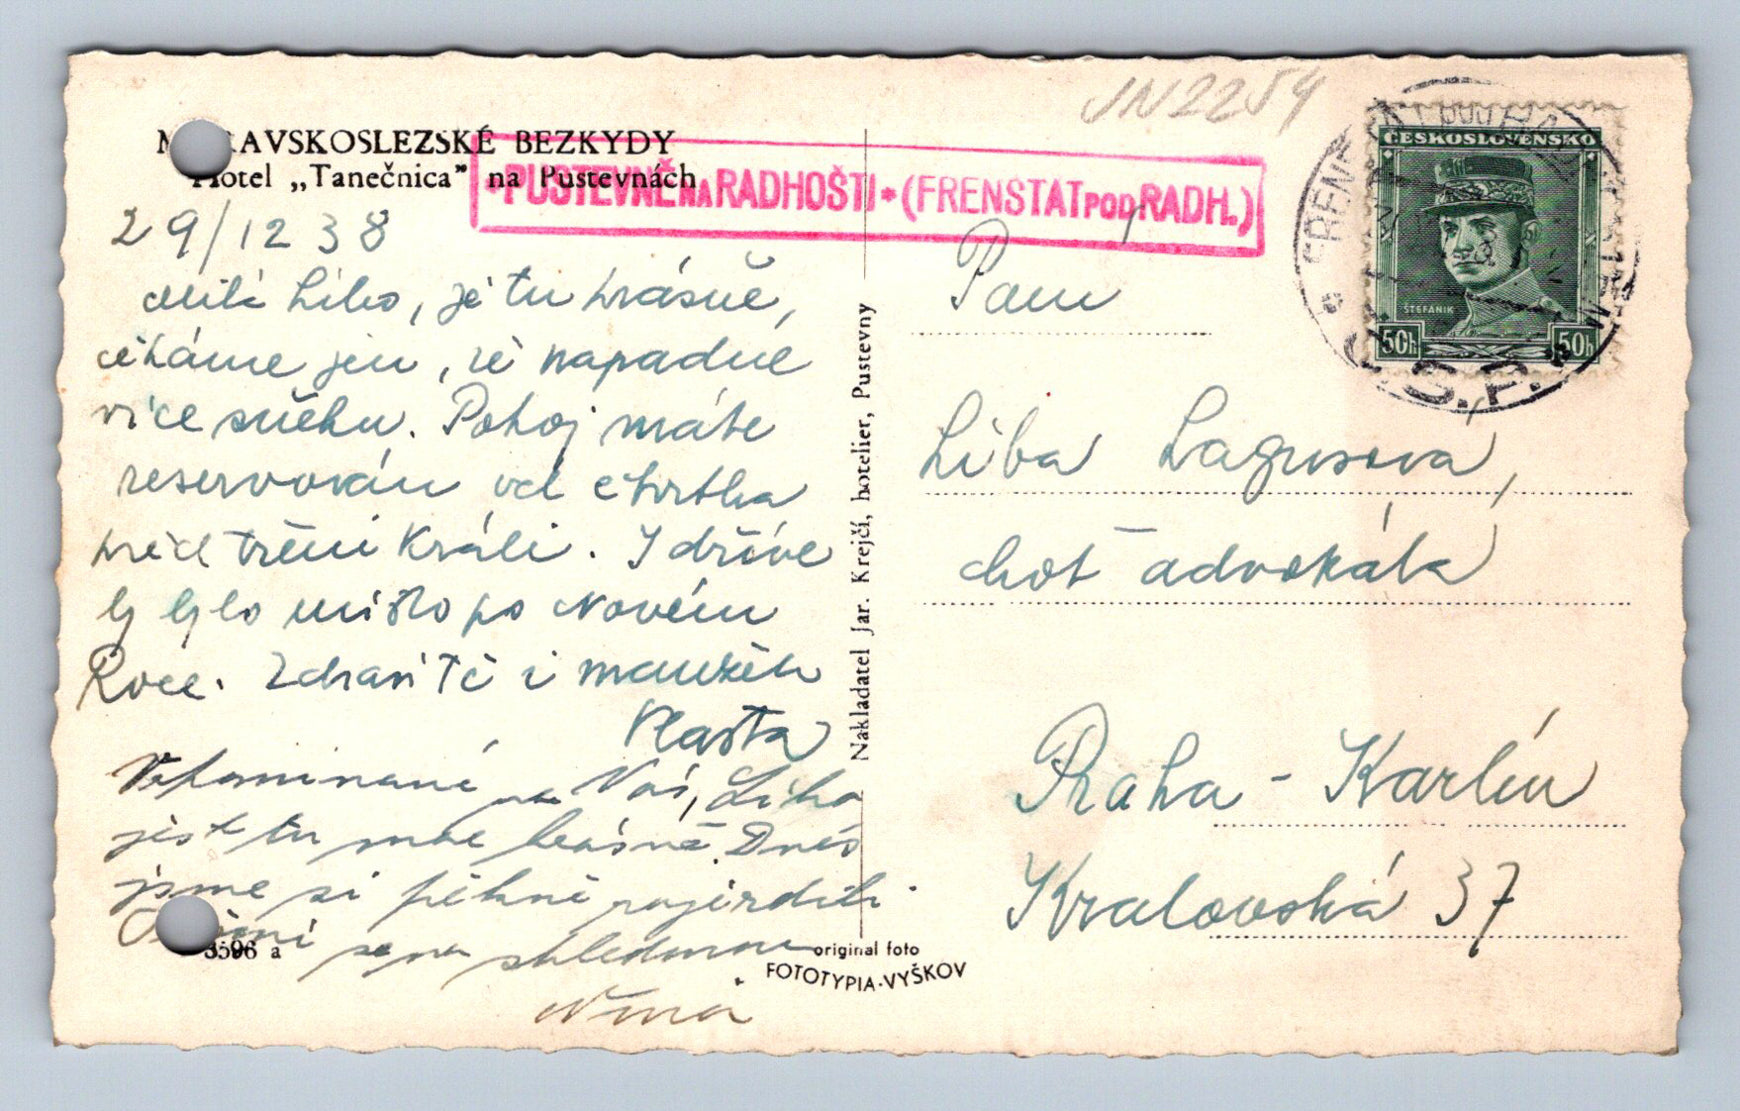 JN2254
MORAVSKOSLEZSKÉ BEZKYDY
Hotel „Tanečnica” na Pustevnách
• PUSTEVNĚ NA RADHOŠTI • (FRENSTAT POD RADH.)
29/12 38
Milá Libo, je tu krásně,
čekáme jen, že napadne
více sněhu. Pokoj máte
reservován od čtvrtka
před třemi Králi. I dříve
by bylo místo po Novém
Roce. Zdraví Tě i manžela
Vlasta
Vzpomínáme na Vás, Libo
jest tu moc krásně. Dnes
jsme si pěkně zajezdili.
se na shledanou
Nina
3596 a
original foto
FOTOTYPIA-VYŠKOV
Nakladatel Jar. Krejčí, hotelier, Pustevny
ČESKOSLOVENSKO
ŠTEFANIK
50h 50h
Č.S.P.
Paní
Liba Lagusová,
choť advokáta
Praha - Karlín
Kralovská 37